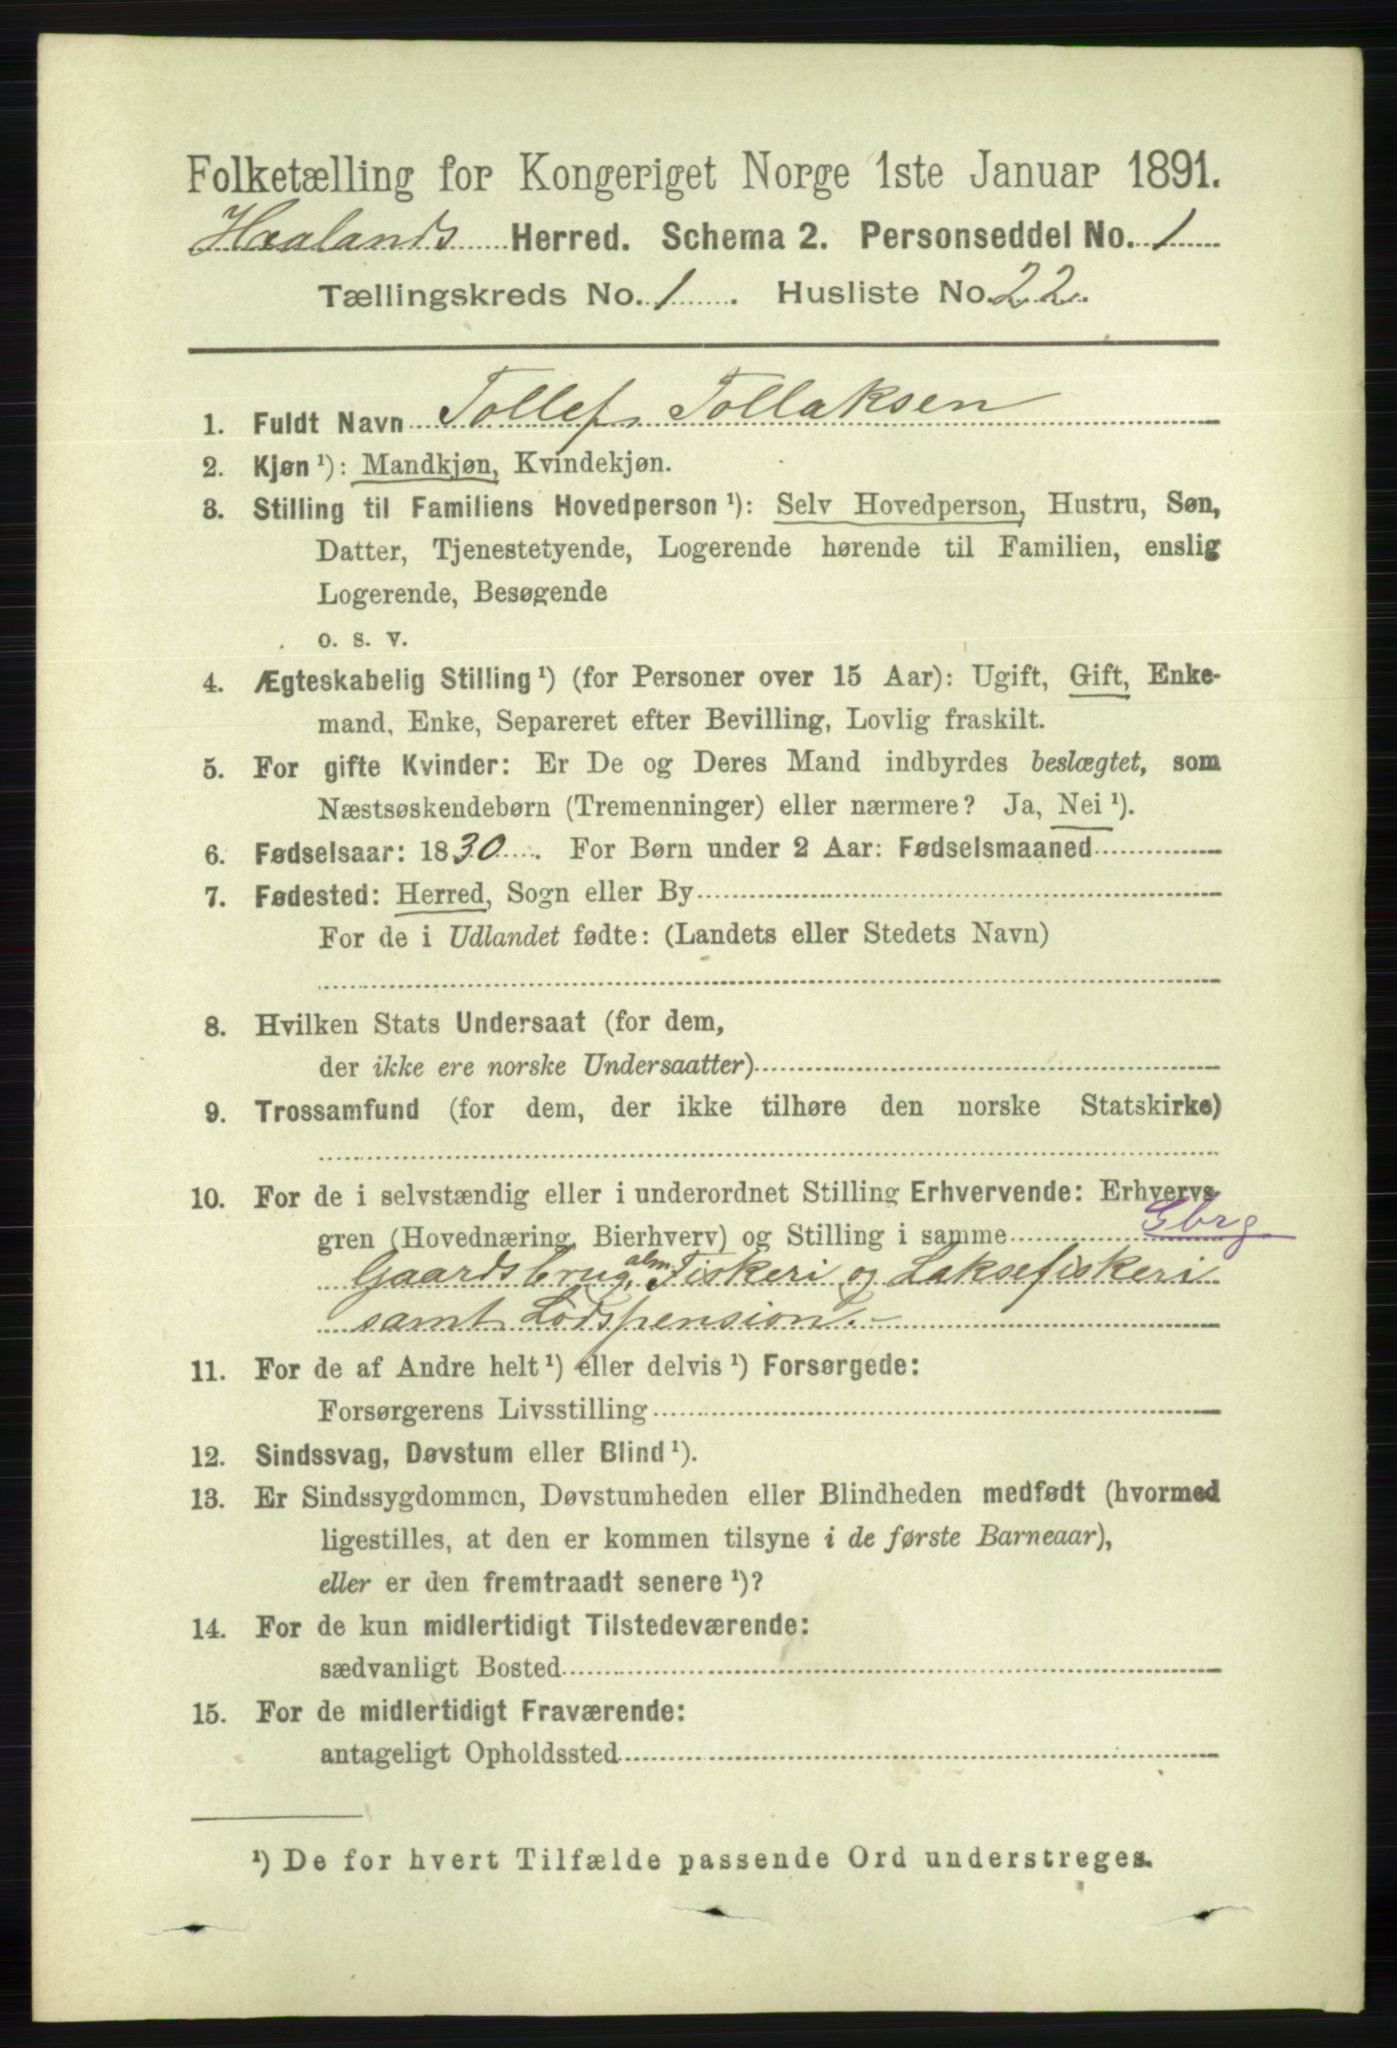 Folketælling for Kongeriget Norge 1ste Januar 1891.
Haalands Herred. Schema 2. Personseddel No. 1
Tællingskreds No. 1. Husliste No. 22.
1. Fuldt Navn Tollef Tollaksen
2. Kjøn ¹): Mandkjøn, Kvindekjøn.
3. Stilling til Familiens Hovedperson ¹): Selv Hovedperson, Hustru, Søn,
Datter, Tjenestetyende, Logerende hørende til Familien, enslig
Logerende, Besøgende
o. s. v.
4. Ægteskabelig Stilling ¹) (for Personer over 15 Aar): Ugift, Gift, Enke-
mand, Enke, Separeret efter Bevilling, Lovlig fraskilt.
5. For gifte Kvinder: Er De og Deres Mand indbyrdes beslægtet, som
Næstsøskendebørn (Tremenninger) eller nærmere? Ja, Nei ¹).
6. Fødselsaar: 1830. For Børn under 2 Aar: Fødselsmaaned
7. Fødested: Herred, Sogn eller By
For de i Udlandet fødte: (Landets eller Stedets Navn)
8. Hvilken Stats Undersaat (for dem,
der ikke ere norske Undersaatter)
9. Trossamfund (for dem, der ikke tilhøre den norske Statskirke)
10. For de i selvstændig eller i underordnet Stilling Erhvervende: Erhvervs
gren (Hovednæring, Bierhverv) og Stilling i samme Gbrg
Gaardsbrug, alm. Fiskeri og Laksefiskeri
samt Lodspension.-
11. For de af Andre helt ¹) eller delvis ¹) Forsørgede:
Forsørgerens Livsstilling
12. Sindssvag, Døvstum eller Blind ¹).
13. Er Sindssygdommen, Døvstumheden eller Blindheden medfødt (hvormed
ligestilles, at den er kommen tilsyne i de første Barneaar),
eller er den fremtraadt senere ¹)?
14. For de kun midlertidigt Tilstedeværende:
sædvanligt Bosted
15. For de midlertidigt Fraværende:
antageligt Opholdssted
¹) De for hvert Tilfælde passende Ord understreges.